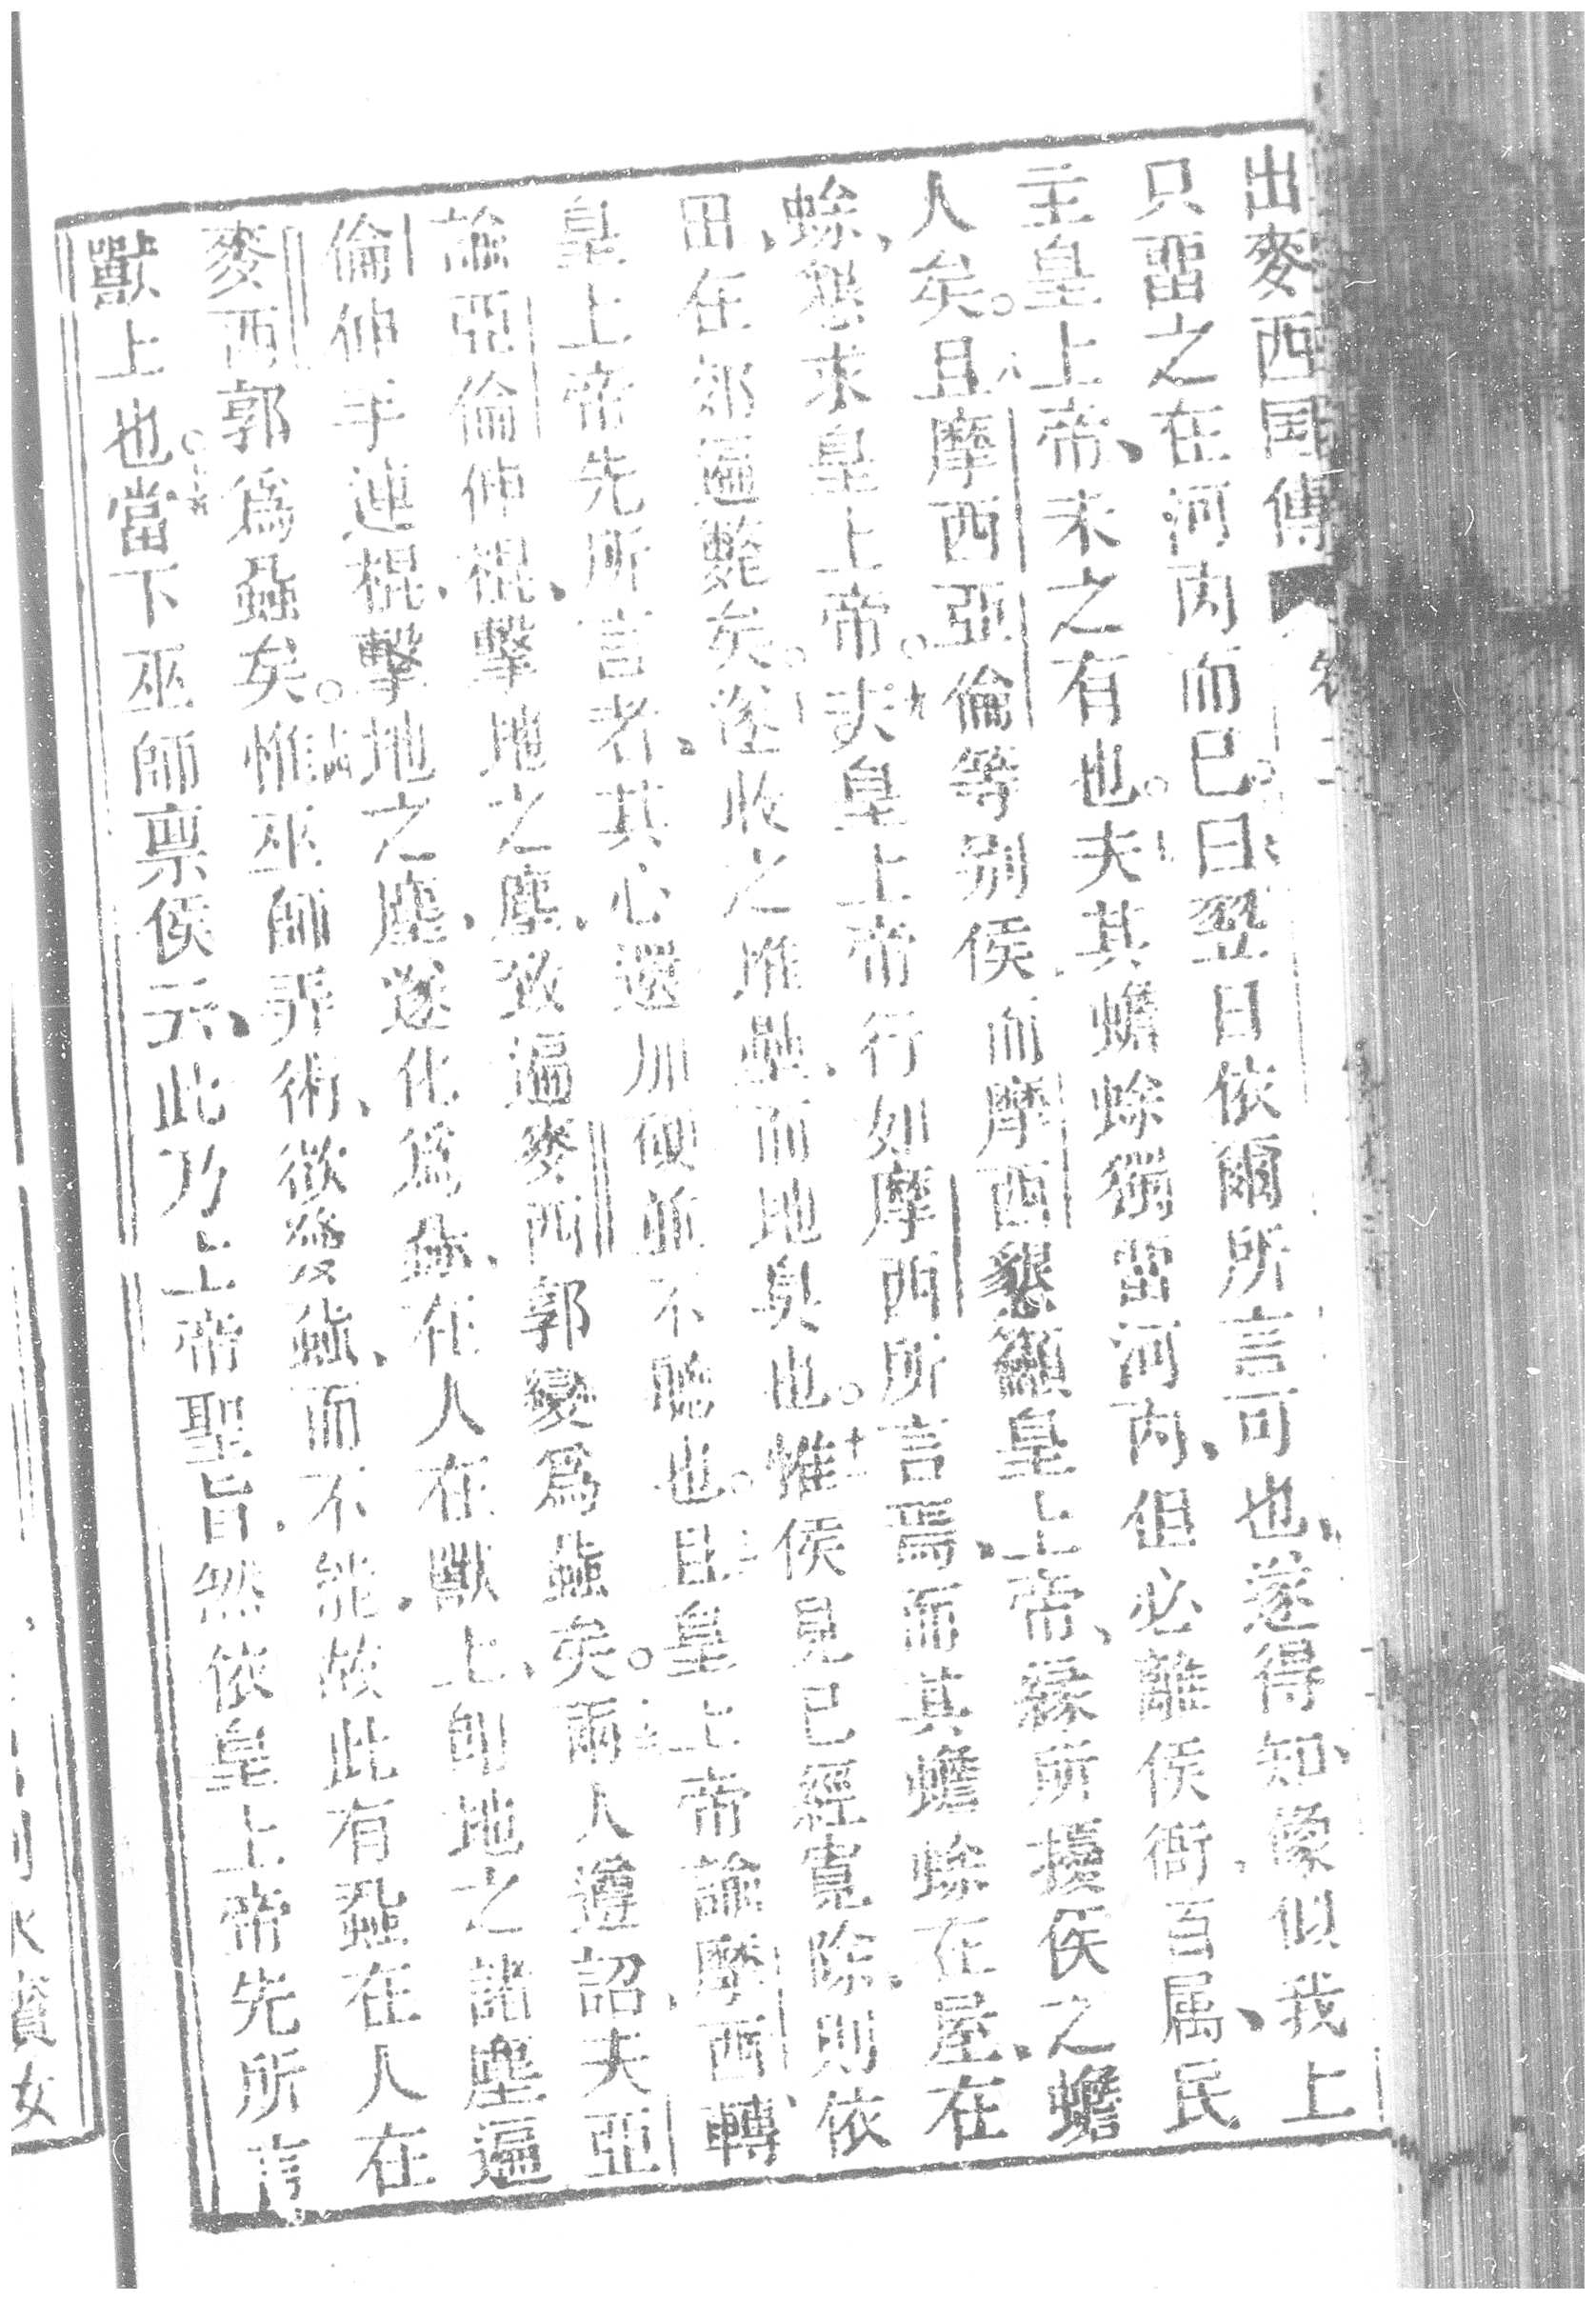 出麥西国傳 卷二
只畱之在河内而已。十曰翌日依爾所言可也、遂得知、像似我上
主皇上帝、未之有也。十一夫其蟾蜍獨畱河内、但必離侯衙百属民
人矣。十二且摩西亞倫等別侯、而摩西懇籲皇上帝、縁所擾侯之蟾
蜍、懇求皇上帝。十三夫皇上帝行如摩西所言焉、而其蟾蜍在屋、在
田、在郊遍斃矣。十四遂收之堆壘、而地臭也。十五惟侯見已經寬除、則依
皇上帝先所言者、其心還加硬並不聽也。十六且皇上帝諭摩西、轉
諭亞倫伸棍、擊地之塵、致遍麥西郭變爲蝨矣。十七兩人遵詔夫亞
倫伸手連棍、擊地之塵、遂化爲蝨、在人在獸上、卽地之諸塵遍
麥西郭爲蝨矣。十八惟巫師弄術、欲發蝨、而不能、故此有蝨在人在
獸上也。十九當下巫師禀侯云、此乃上帝聖旨、然依皇上帝先所言、